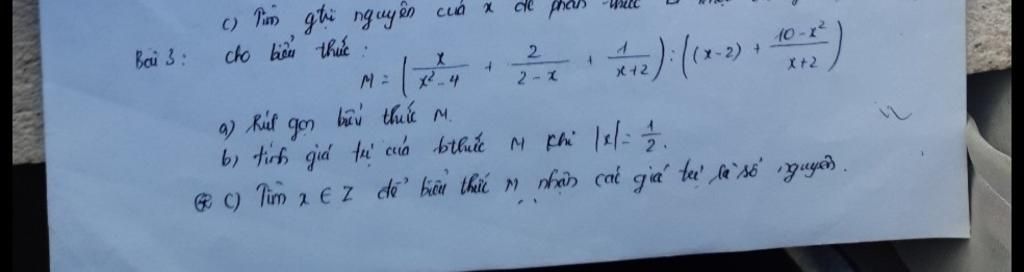 c) Tìm gtrị nguyên của x để phân thức
Bài 3: cho biểu thức:
M = ( x / (x² - 4) + 2 / (2 - x) + 1 / (x+2) ) : ( (x-2) + (10 - x²) / (x+2) )
a) Rút gọn biểu thức M.
b) tính giá trị của bthức M khi |x| = 1/2.
c) Tìm x ∈ Z để biểu thức M nhận các giá trị là số nguyên.